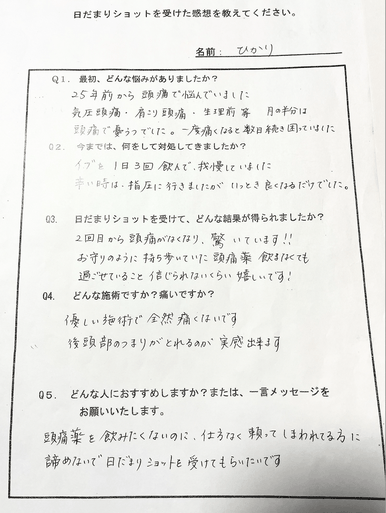 日だまりショットを受けた感想を教えてください。
名前： ひかり
Q1. 最初、どんな悩みがありましたか？
25年前から頭痛で悩んでいました
気圧頭痛・肩こり頭痛・生理前等 月の半分は
頭痛で憂うつでした。一度痛くなると数日続き困っていました
Q2. 今までは、何をして対処してきましたか？
イブを1日3回飲んで、我慢していました
辛い時は、指圧に行きましたがいっとき良くなるだけでした。
Q3. 日だまりショットを受けて、どんな結果が得られましたか？
2回目から頭痛がなくなり、驚いています!!
お守りのように持ち歩いていた頭痛薬飲まなくても
過ごせていること信じられないくらい嬉しいです!
Q4. どんな施術ですか？痛いですか？
優しい施術で全然痛くないです
後頭部のつまりがとれるのが実感出来ます
Q5. どんな人におすすめしますか？または、一言メッセージを
お願いいたします。
頭痛薬を飲みたくないのに、仕方なく頼ってしまわれてる方に
諦めないで日だまりショットを受けてもらいたいです